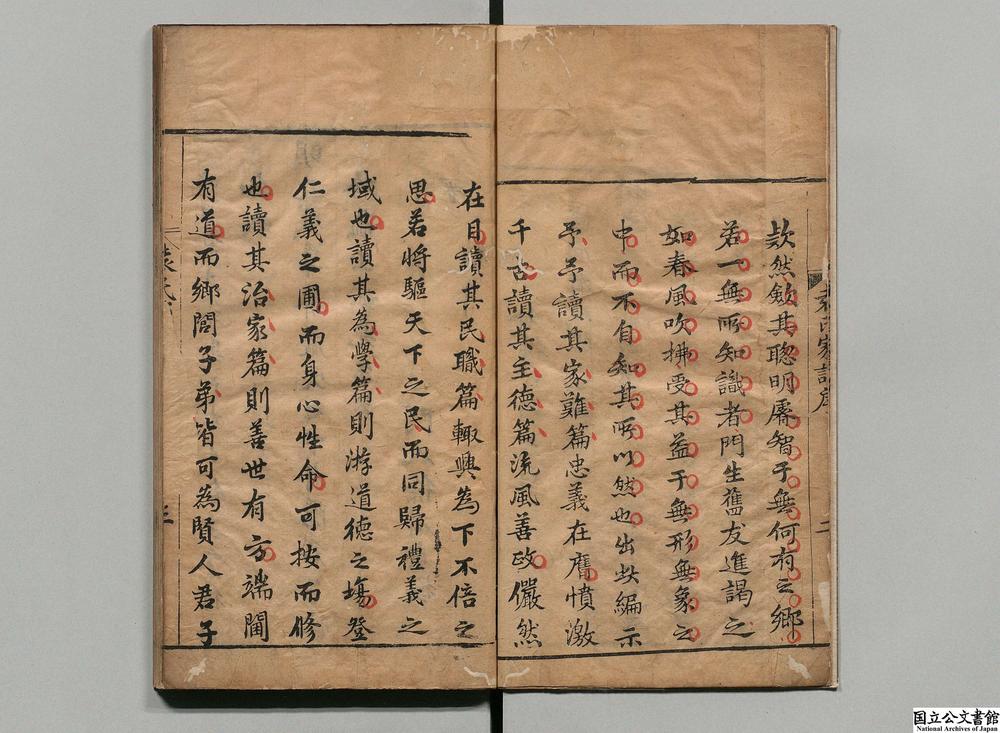 欿然斂其聰明睿智于無何有之鄉
若一無所知識者門生舊友進謁之
如春風吹拂受其益于無形無象之
中而不自知其所以然也出此編示
予予讀其家難篇忠義在膺憤激
千古讀其主德篇流風善政儼然
在目讀其民職篇輙興為下不倍之
思若將驅天下之民而同歸禮義之
域也讀其為學篇則游道德之塲登
仁義之圃而身心性命可按而修
也讀其治家篇則善世有方端閫
有道而鄉閭子弟皆可為賢人君子
袁氏家訓序
二
三
国立公文書館
National Archives of Japan